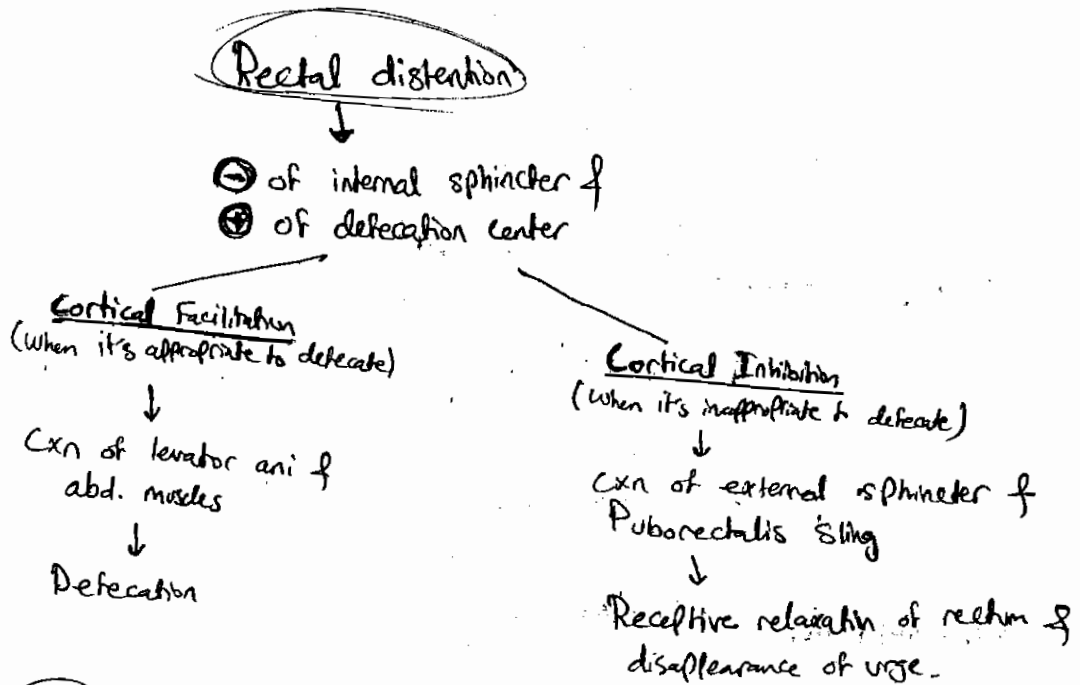 Rectal distention
↓
⊖ of internal sphincter &
⊕ of defecation center
Cortical Facilitation
(when it's appropriate to defecate)
↓
Cxn of levator ani &
abd. muscles
↓
Defecation
Cortical Inhibition
(when it's inappropriate to defecate)
↓
Cxn of external sphincter &
Puborectalis Sling
↓
Receptive relaxatin of rectum &
disappearance of urge.